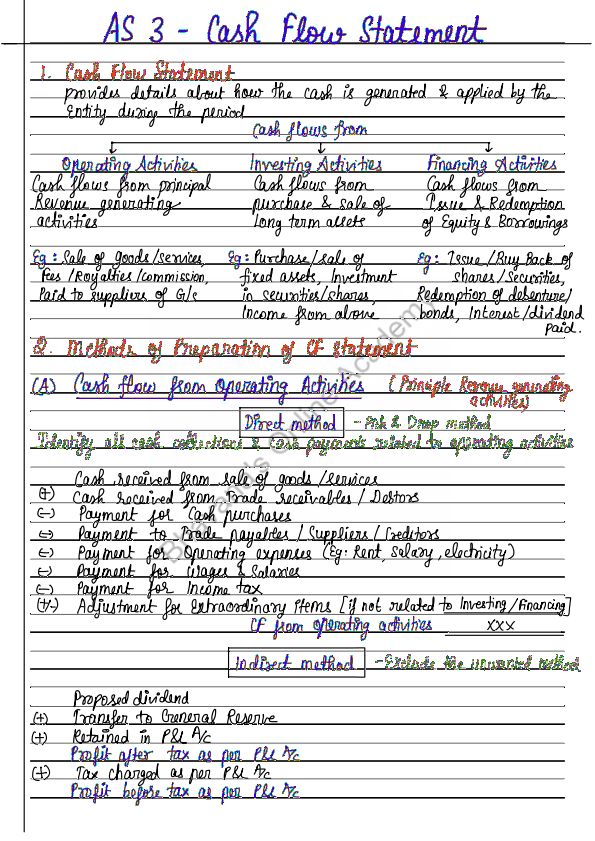 AS 3 - Cash Flow Statement
1. Cash Flow Statement
provides details about how the cash is generated & applied by the
Entity during the period
Cash flows from
Operating Activities Investing Activities Financing Activities
Cash flows from principal Cash flows from Cash flows from
Revenue generating purchase & sale of Issue & Redemption
activities Long term assets of Equity & Borrowings
Eg: Sale of goods/services, Eg: Purchase/sale of Eg: Issue/Buy Back of
Fees/Royalties/commission, fixed assets, Investment shares/Securities,
Paid to suppliers of G/s in securities/shares, Redemption of debenture/
Income from above bonds, Interest/dividend
paid.
2. Methods of Preparation of CF Statement
(A) Cash flow from Operating Activities (Principle Revenue generating
activities)
Direct method - Pick & Drop method
Identify all cash collections & cash payments related to operating activities
Cash received from sale of goods/services
(+) Cash received from Trade receivables/Debtors
(-) Payment for Cash purchases
(-) Payment to Trade payables/Suppliers/Creditors
(-) Payment for Operating expenses (Eg: Rent, Salary, electricity)
(-) Payment for Wages & Salaries
(-) Payment for Income tax
(+/-) Adjustment for Extraordinary Items [if not related to Investing/Financing]
CF from operating activities XXX
Indirect method - Exclude the unwanted method
Proposed dividend
(+) Transfer to General Reserve
(+) Retained in P&L A/c
Profit after tax as per P&L A/c
(+) Tax charged as per P&L A/c
Profit before tax as per P&L A/c
Bhavana's Online Academy